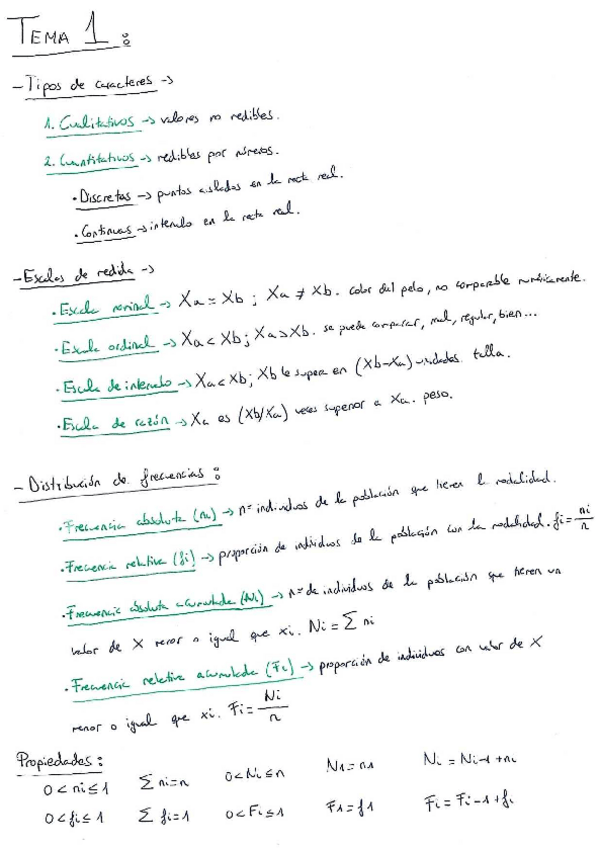 TEMA 1:
- Tipos de caracteres →
1. Cualitativos → valores no medibles.
2. Cuantitativos → medibles por números.
· Discretas → puntos aislados en la recta real.
· Continuas → intervalo en la recta real.
- Escalas de medida →
· Escala nominal → Xa = Xb ; Xa ≠ Xb. color del pelo, no comparable numéricamente.
· Escala ordinal → Xa < Xb ; Xa > Xb. se puede comparar, mal, regular, bien...
· Escala de intervalo → Xa < Xb ; Xb le supera en (Xb-Xa) unidades talla.
· Escala de razón → Xa es (Xb/Xa) veces superior a Xa. peso.
- Distribución de frecuencias:
· Frecuencia absoluta (ni) → nº individuos de la población que tienen la modalidad.
· Frecuencia relativa (fi) → proporción de individuos de la población con la modalidad. fi = ni/n
· Frecuencia absoluta acumulada (Ni) → nº de individuos de la población que tienen un
valor de X menor o igual que xi. Ni = Σ ni
· Frecuencia relativa acumulada (Fi) → proporción de individuos con valor de X
menor o igual que xi. Fi = Ni/n
Propiedades:
0 < ni ≤ 1 Σ ni = n 0 < Ni ≤ n N1 = n1 Ni = Ni-1 + ni
0 < fi ≤ 1 Σ fi = 1 0 < Fi ≤ 1 F1 = f1 Fi = Fi-1 + fi